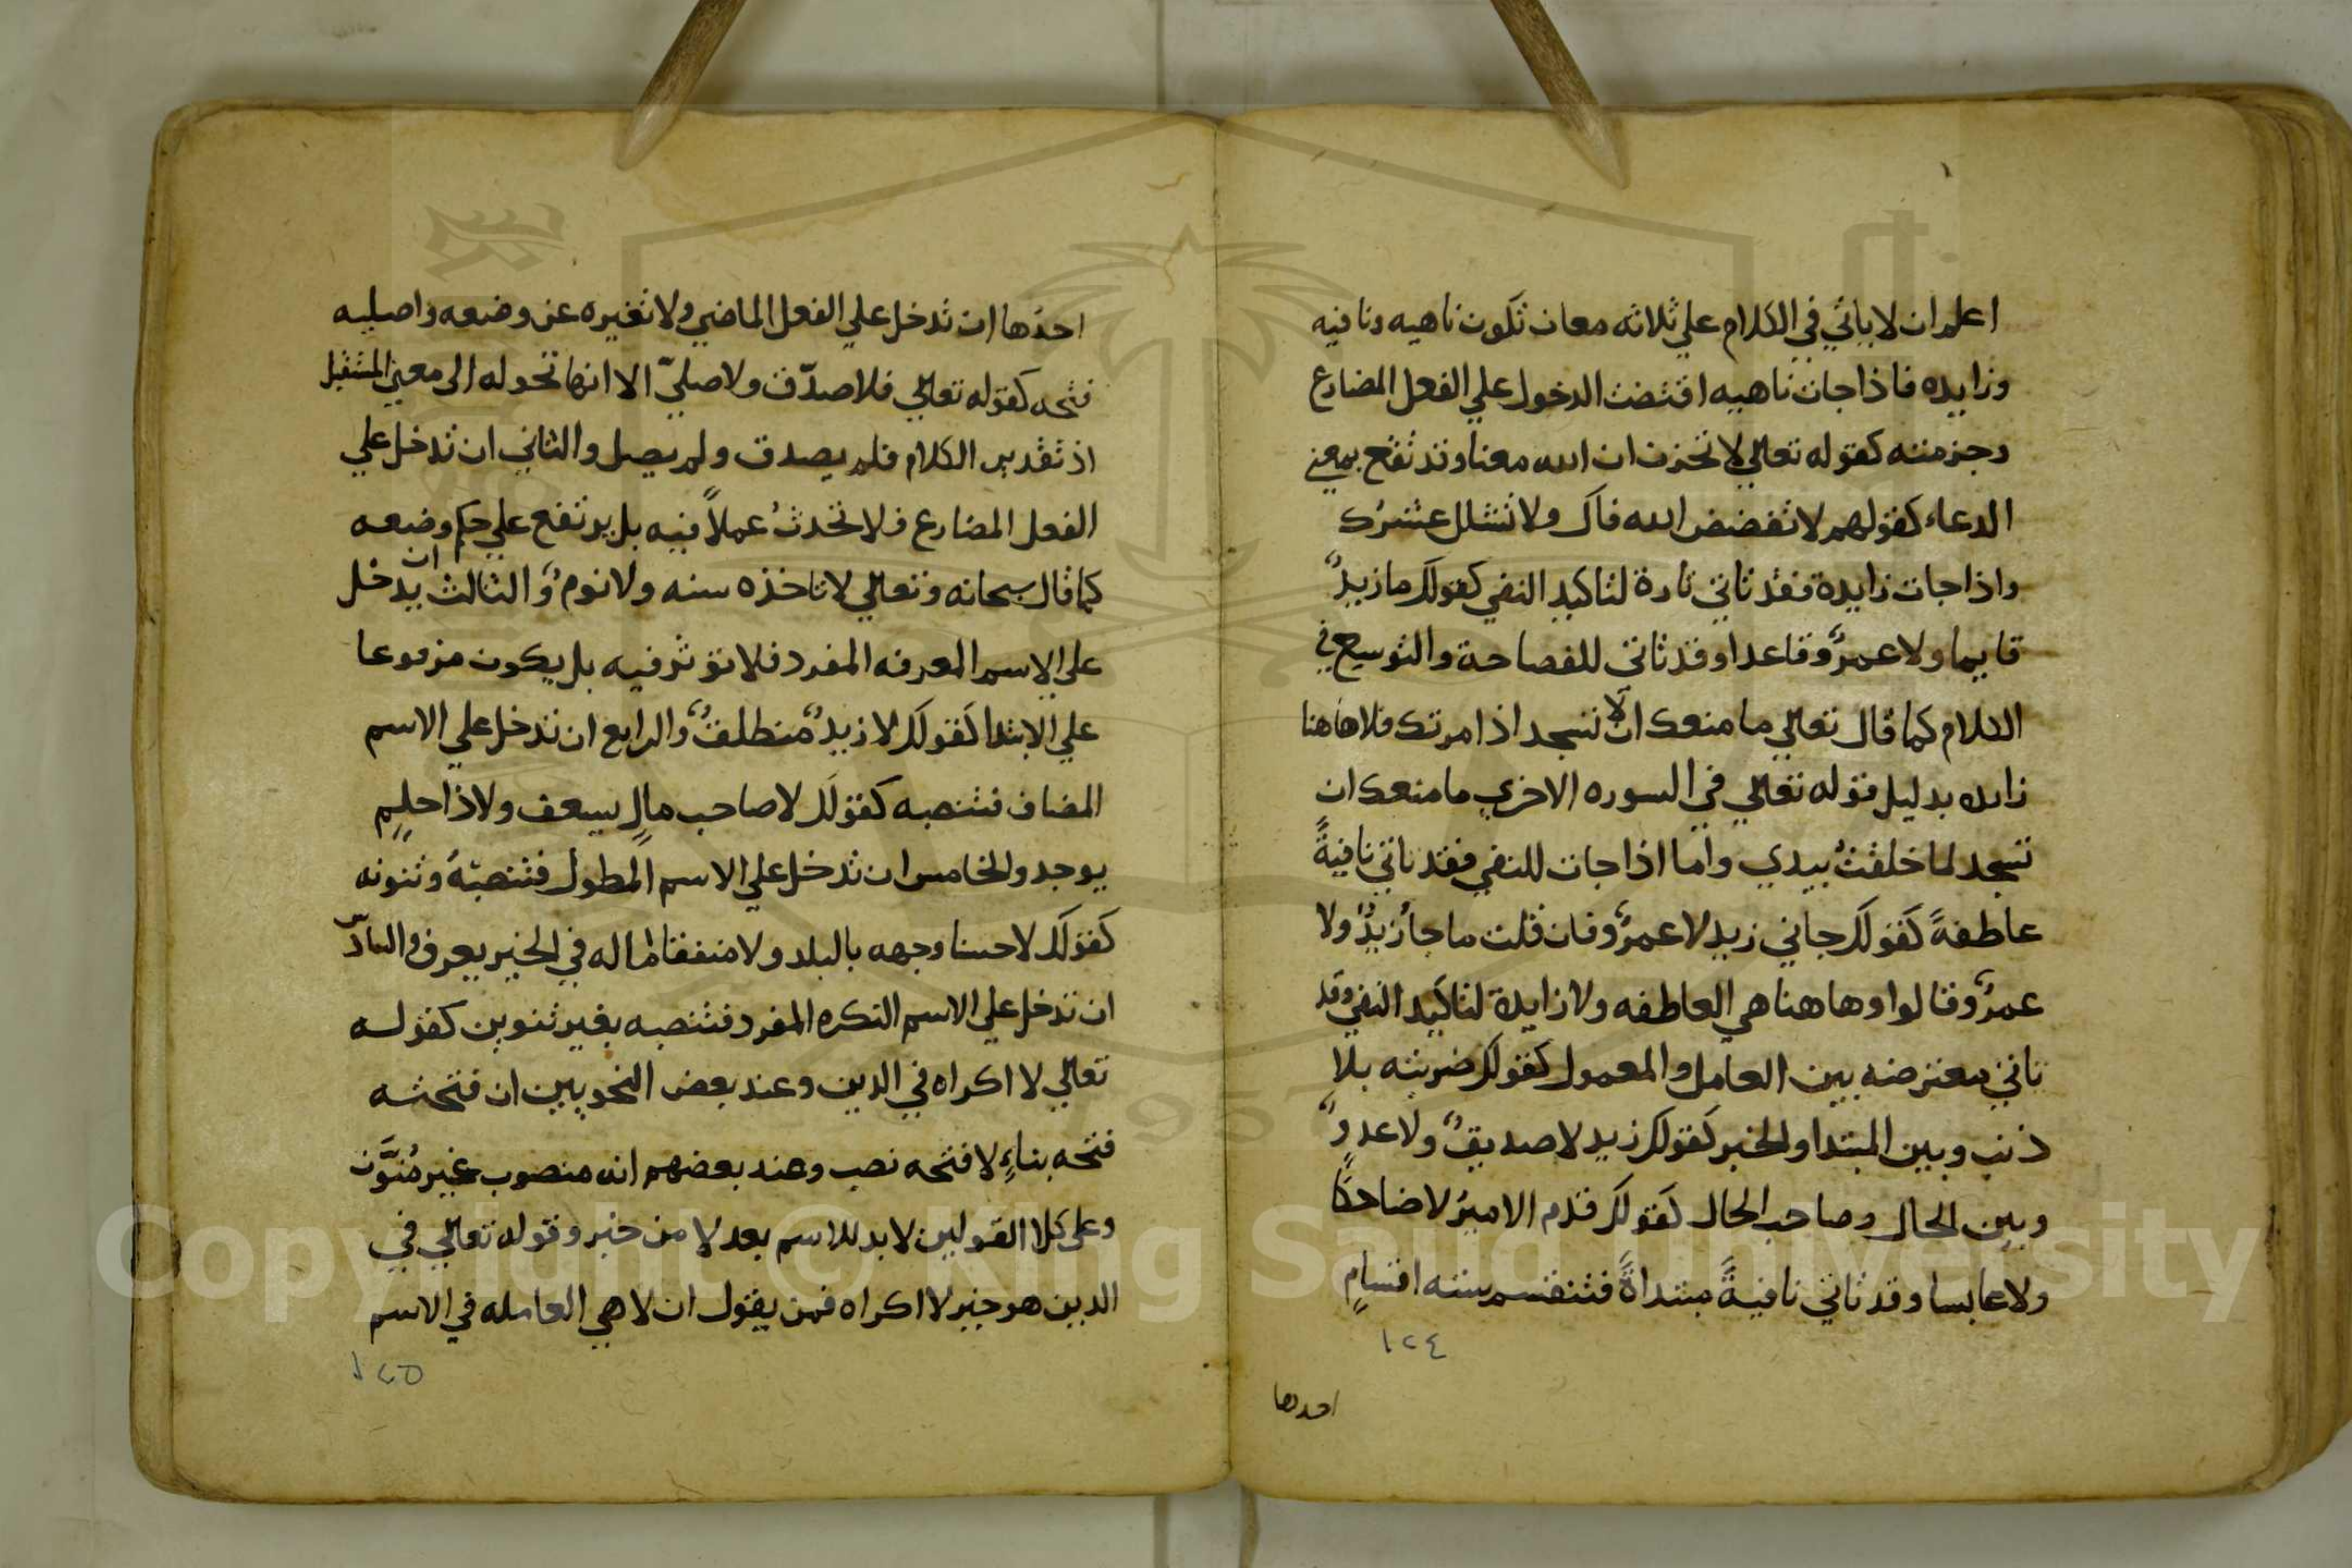 اعلم ان لا ياتي في الكلام علي ثلاثه معان تكون ناهيه ونافيه
وزايده فاذا جات ناهيه اقتضت الدخول علي الفعل المضارع
وجزمته كقوله تعالي لا تحزن ان الله معنا وقد تقع بمعني
الدعاء كقولهم لا تفضض الله فاك ولا تشلل عشرك
واذا جات زايدة فقد تاتي تارة لتاكيد النفي كقولك ما زيدٌ
قايما ولا عمرٌو قاعدا وقد تاتي للفصاحة والتوسيع في
الكلام كما قال تعالي ما منعك ان لا تسجد اذ امرتك فلا هاهنا
زايده بدليل قوله تعالي في السوره الاخري ما منعك ان
تسجد لما خلقتُ بيدي واما اذا جات للنفي فقد تاتي نافيةً
عاطفةً كقولك جاني زيد لا عمرٌو فان قلت ما جاَ زيدٌ ولا
عمرٌو قالوا وهاهنا هي العاطفه ولا زايدة لتاكيد النفي وقد
تاتي معترضه بين العامل والمعمول كقولك ضربته بلا
ذنب وبين المبتدا والخبر كقولك زيد لا صديقٌ ولا عدوٌ
وبين الحال وصاحب الحال كقولك قدم الاميرُ لا ضاحكًا
ولا عابسا وقد تاتي نافيةً مبتداةً فتنقسم ستة اقسامٍ
١٢٤
احدها
احدها ان تدخل علي الفعل الماضي ولا تغيره عن وضعه واصليه
فتحه كقوله تعالي فلا صدّق ولا صليّ الا انها تحوله الى معني المستقبل
اذ تقدير الكلام فلم يصدق ولم يصل والثاني ان تدخل علي
الفعل المضارع فلا تحدثُ عملاً فيه بل يرتفع علي حكم وضعه
كما قال سبحانه وتعالي لا تاخذه سنه ولا نومٌ والثالث ان يدخل
علي الاسم المعرفه المفرد فلا تؤثر فيه بل يكون مرفوعا
علي الابتدا كقولك لا زيدٌ منطلقٌ والرابع ان تدخل علي الاسم
المضاف فتنصبه كقولك لا صاحب مالٍ يسعف ولا ذا حلمٍ
يوجد والخامس ان تدخل علي الاسم المطول فتنصبَهُ وتنونه
كقولك لا حسنا وجهه بالبلد ولا منفقا ماله في الخير يعرف والسادس
ان تدخل علي الاسم النكره المفرد فتنصبه بغير تنوين كقوله
تعالي لا اكراه في الدين وعند بعض النحويين ان فتحته
فتحه بناءٍ لا فتحه نصب وعند بعضهم انه منصوب غير مُنَوَّن
وعلى كلا القولين لا بد للاسم بعد لا من خبر وقوله تعالي في
الدين هو خبر لا اكراه فمن يقول ان لا هي العامله في الاسم
١٢٥
Copyright © King Saud University